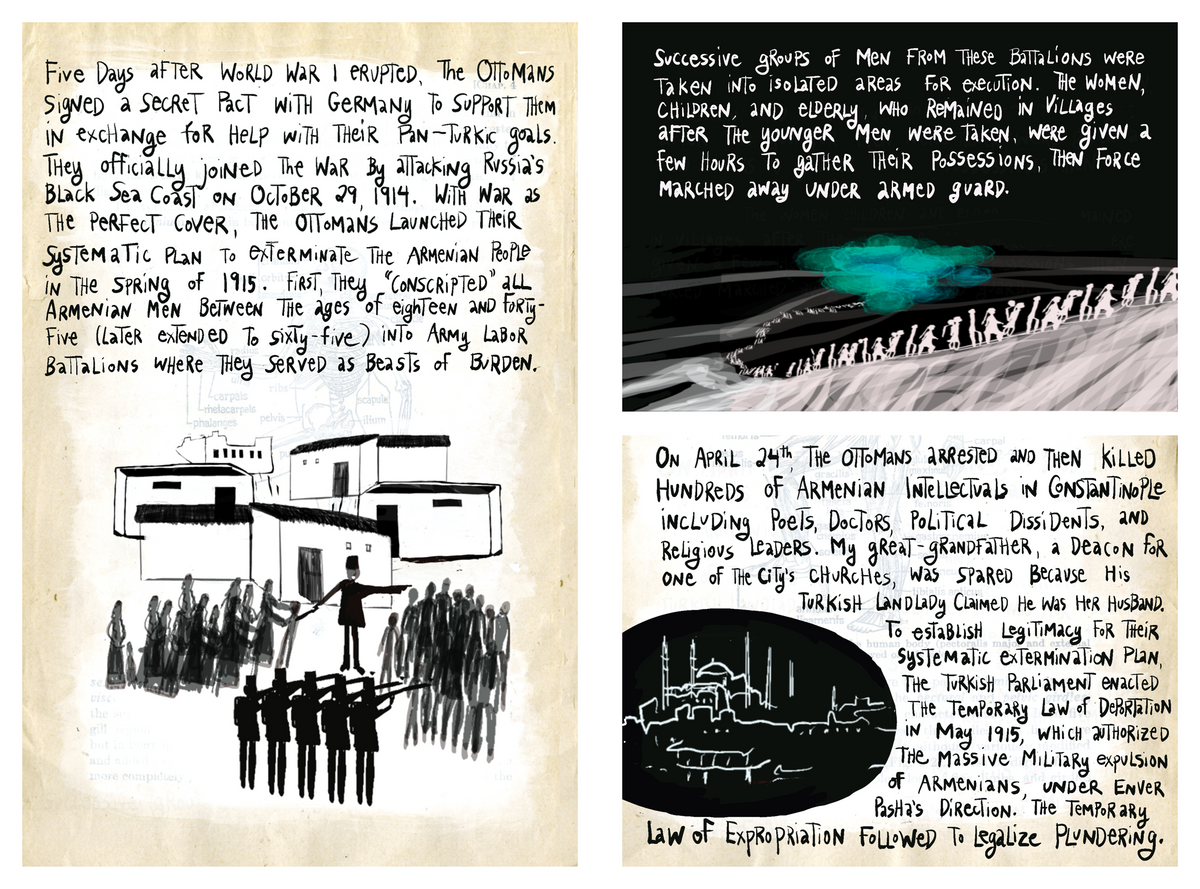 Five Days after World War I erupted, the Ottomans
signed a secret pact with Germany to support them
in exchange for help with their Pan-Turkic goals.
They officially joined the war by attacking Russia's
Black Sea Coast on October 29, 1914. With war as
the perfect cover, the Ottomans launched their
systematic plan to exterminate the Armenian people
in the spring of 1915. First, they "conscripted" all
Armenian men between the ages of eighteen and forty-
five (later extended to sixty-five) into Army Labor
Battalions where they served as beasts of burden.
ribs
carpals
metacarpals
phalanges
pelvis
scapula
ilium
more compl
the
Successive groups of men from these battalions were
taken into isolated areas for execution. The women,
children, and elderly, who remained in villages
after the younger men were taken, were given a
few hours to gather their possessions, then force
marched away under armed guard.
On April 24th, the Ottomans arrested and then killed
hundreds of Armenian intellectuals in Constantinople
including poets, doctors, political dissidents, and
religious leaders. My great-grandfather, a deacon for
one of the city's churches, was spared because his
Turkish landlady claimed he was her husband.
To establish legitimacy for their
systematic extermination plan,
the Turkish Parliament enacted
the Temporary Law of Deportation
in May 1915, which authorized
the massive military expulsion
of Armenians, under Enver
Pasha's direction. The Temporary
Law of Expropriation followed to legalize plundering.